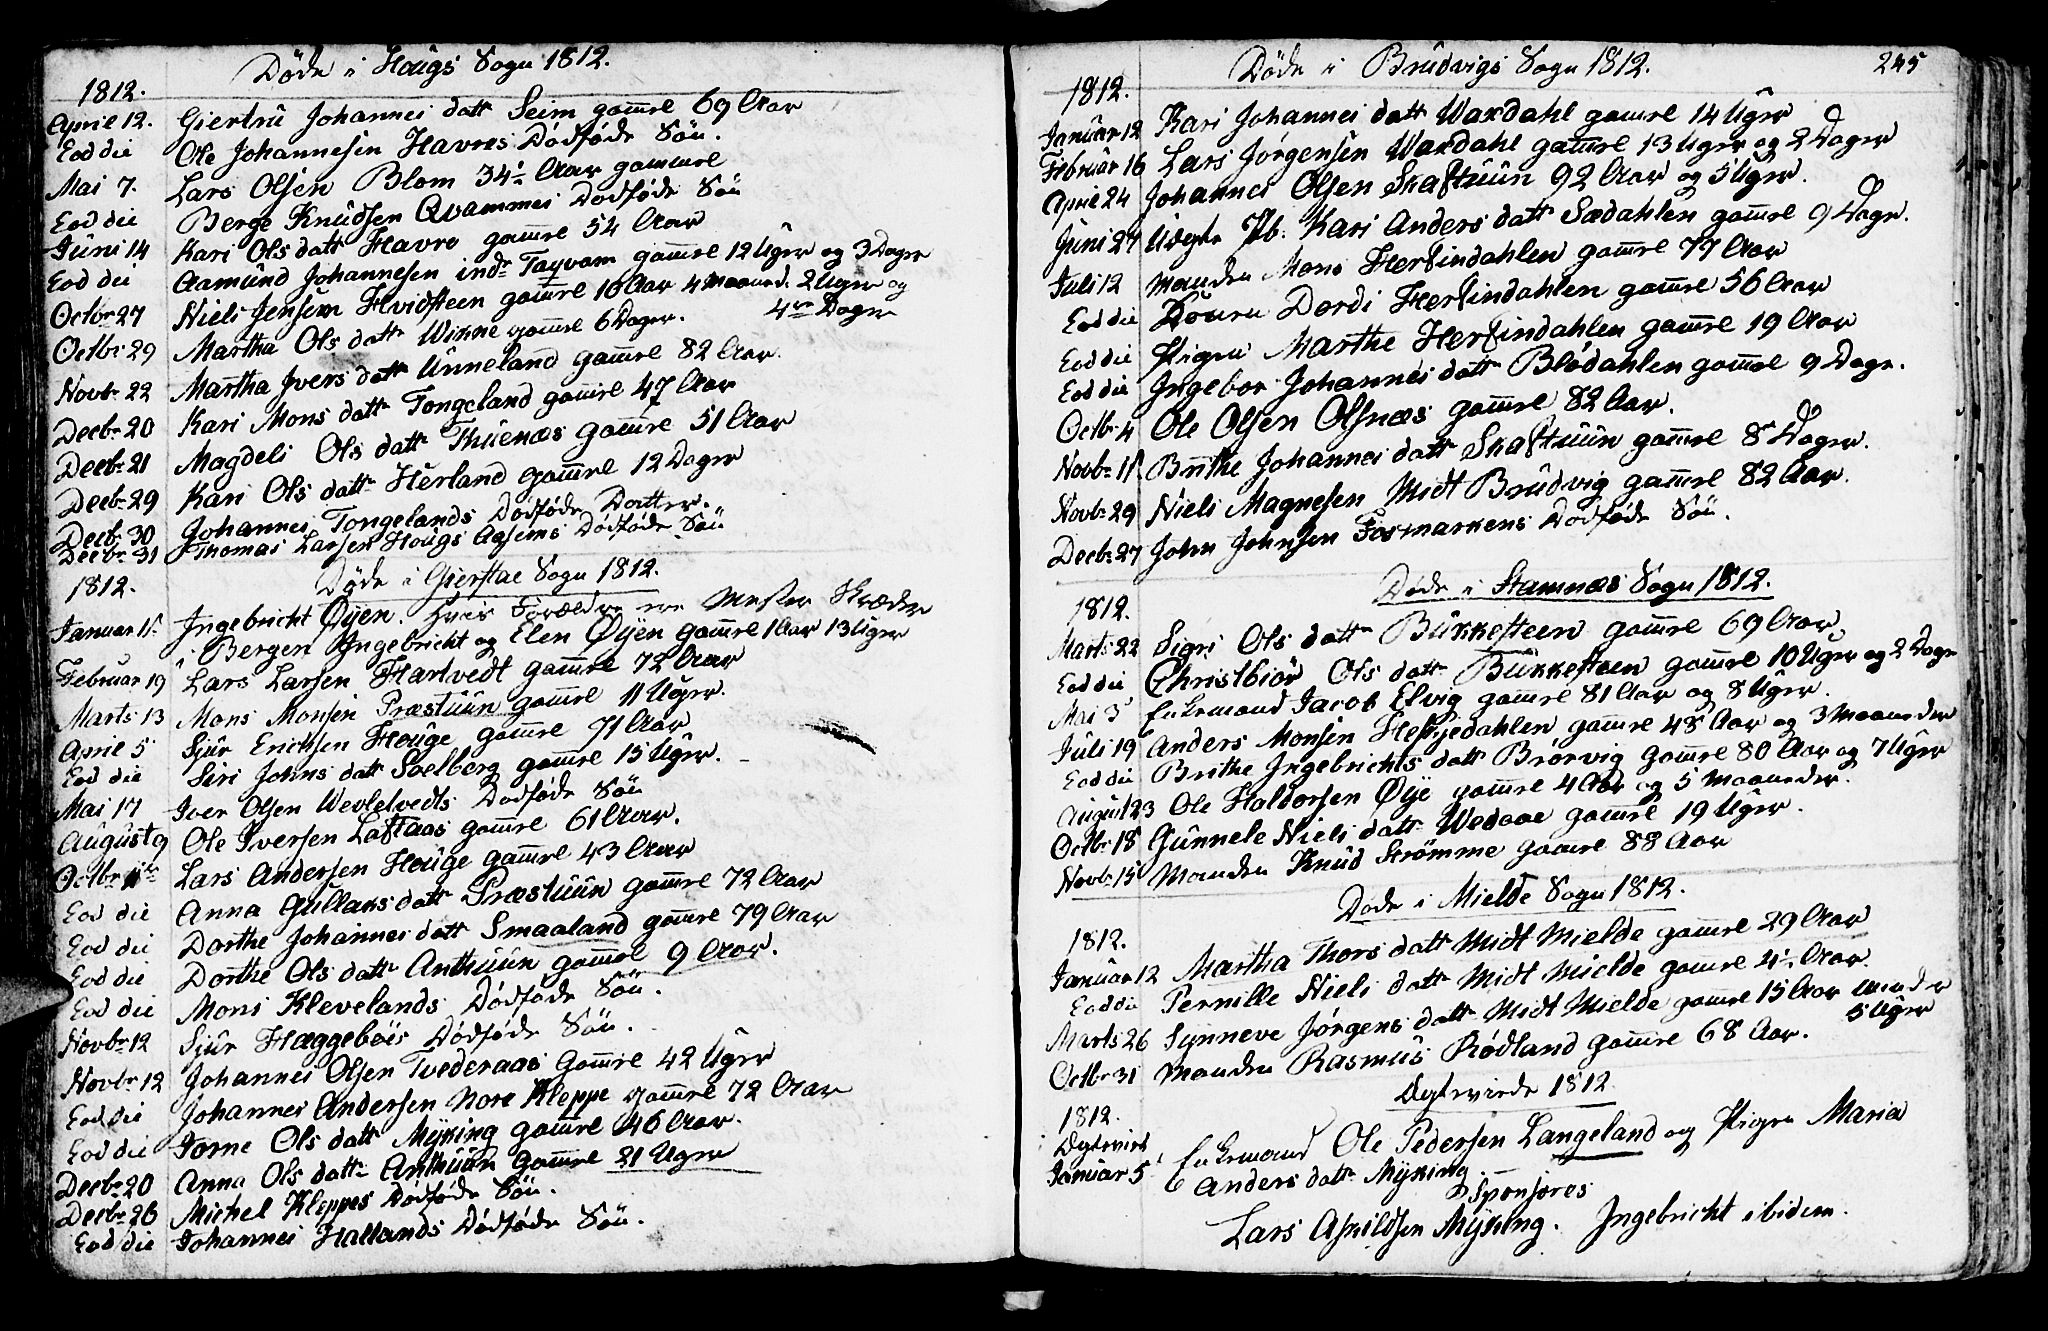 Døde i Houigs Sogn 1812.
1812.
April 12. Giertrü Johannes datt Seim gaml 69 Aar
Eod die Ole Johannesen Havres Dødføde Søn.
Mai 7. Lars Olsen Blom 34½ Aar gammel
Eod die Berge Knudsen Qvammes Dødføde Søn
Juni 14 Kari Ols datt Havre gaml 54 Aar
Eod die Aamund Johannesen indr Tayvam gaml 12 Uger og 3 Dager
Octbr 27 Niels Jensen Hvidsteen gaml 16 Aar 4 Maaned. 2 Uger og
4re Dage
Octbr 29 Martha Ols datt Winne gaml 6 Dager.
Novbr 22 Martha Ivers datt Unneland gaml 82 Aar.
Decbr 20 Kari Mons datt Tongeland gaml 47 Aar
Decbr 21 Magdeli Ols datt Thuenæs gaml 51 Aar
Decbr 29 Kari Ols datt Herland gaml 12 Dager
Decbr 30 Johannes Tongelands Dødføde Datter.
Decbr 31 Thomas Larsen Hougs Aasems Dødføde Søn
Døde i Gierstae Sogn 1812.
1812.
Januar 15 Ingebricht Øyen. hvis Forældre ere Mester Skræder
i Bergen Ingebricht og Elen Øyen gaml 1 Aar 13 Uger
Februar 19 Lars Larsen Hartvedt gaml 72 Aar
Marts 13 Mons Monsen Præstuun gaml 11 Uger.
April 5 Sjur Erichsen Houge gaml 71 Aar
Eod die Siri Johns datt Soelberg gaml 15 Uger.
Mai 17 Iver Olsen Wevletvedts Dødføde Søn
August 9 Ole Iversen Loftaas gaml 61 Aar.
Octbr 11te Lars Andersen Houge gaml 43 Aar
Eod die Anna Gullaks datt Præstuun gaml 72 Aar
Eod die Dorthe Johannes datt Smaaland gaml 79 Aar
Eod die Dorthe Ols datt Anthuun gaml 9 Aar.
Eod die Mons Klevelands Dødføde Søn.
Novbr 12 Sjur Hæggebøes Dødføde Søn.
Novbr 12 Johannes Olsen Tvederaas gaml 42 Uger
Eod die Johannes Andersen Nore Kleppe gaml 72 Aar
Eod die Jorne Ols datt Myking gaml 46 Aar.
Decbr 20 Anna Ols datt Anthuun gaml 21 Uger
Decbr 26 Michel Kleppes Dødføde Søn.
Eod die Johannes Hallands Dødføde Søn.
Døde i Brudvigs Sogn 1812. 245
1812.
Januar 12 Kari Johannes datt Waxdahl gaml 14 Uger
Februar 16 Lars Jørgensen Waxdahl gaml 13 Uger og 2 Dager
April 24 Johannes Olsen Skaftuun 92 Aar og 5 Uger.
Juni 24 Uægte Pb. Kari Anders datt Sædahlen gaml 9 Dage.
Juli 12 Manden Mons Herfindahlen gaml 77 Aar
Eod die Konen Dordi Herfindahlen gaml 56 Aar
Eod die Pigen Marthe Herfindahlen gaml 19 Aar
Eod die Ingebor Johannes datt Blødahlen gaml 9 Dage.
Octbr 4 Ole Olsen Olsnæs gaml 82 Aar.
Novbr 15 Brithe Johannes datt Skaftuun gaml 8 Dager.
Novbr 29 Niels Magnesen Midt Brudvig gaml 82 Aar.
Decbr 27 John Johnsen Fosmarkens Dødføde Søn.
Døde i Stamnæs Sogn 1812.
1812.
Marts 22 Sigri Ols datt Bukkesteen gaml 69 Aar
Eod die Christbiør Ols datt Bukkesteen gaml 10 Uger og 2 Dage
Mai 3 Enkemand Jacob Elvig gaml 81 Aar og 8 Uger.
Juli 19 Anders Monsen Hesjedahlen gaml 48 Aar og 3 Maaneder
Eod die Brithe Ingebrichts datt Brørvig gaml 80 Aar og 7 Uger
August 23 Ole Haldorsen Øye gaml 4 Aar og 5 Maaneder.
Octbr 18 Gunnele Niels datt Wedaae gaml 19 Uger.
Novbr 15 Manden Knud Strømme gaml 88 Aar
Døde i Mielde Sogn 1812.
1812.
Januar 12 Martha Thors datt Midt Mielde gaml 29 Aar
Eod die Pernille Niels datt Midt Mielde gaml 4½ Aar.
Marts 26 Synneve Jørgens datt Midt Mielde gaml 15 Aar minder
5 Uger
Octbr 31 Manden Rasmus Rødland gaml 68 Aar.
Ægtevirde 1812
1812.
Ægtevirt
Januar 5 Enkemand Ole Pedersen Langeland og Pigen Maria
Anders datt Myking
Sponsores
Lars Askildsen Myking. Ingebricht ibidem.